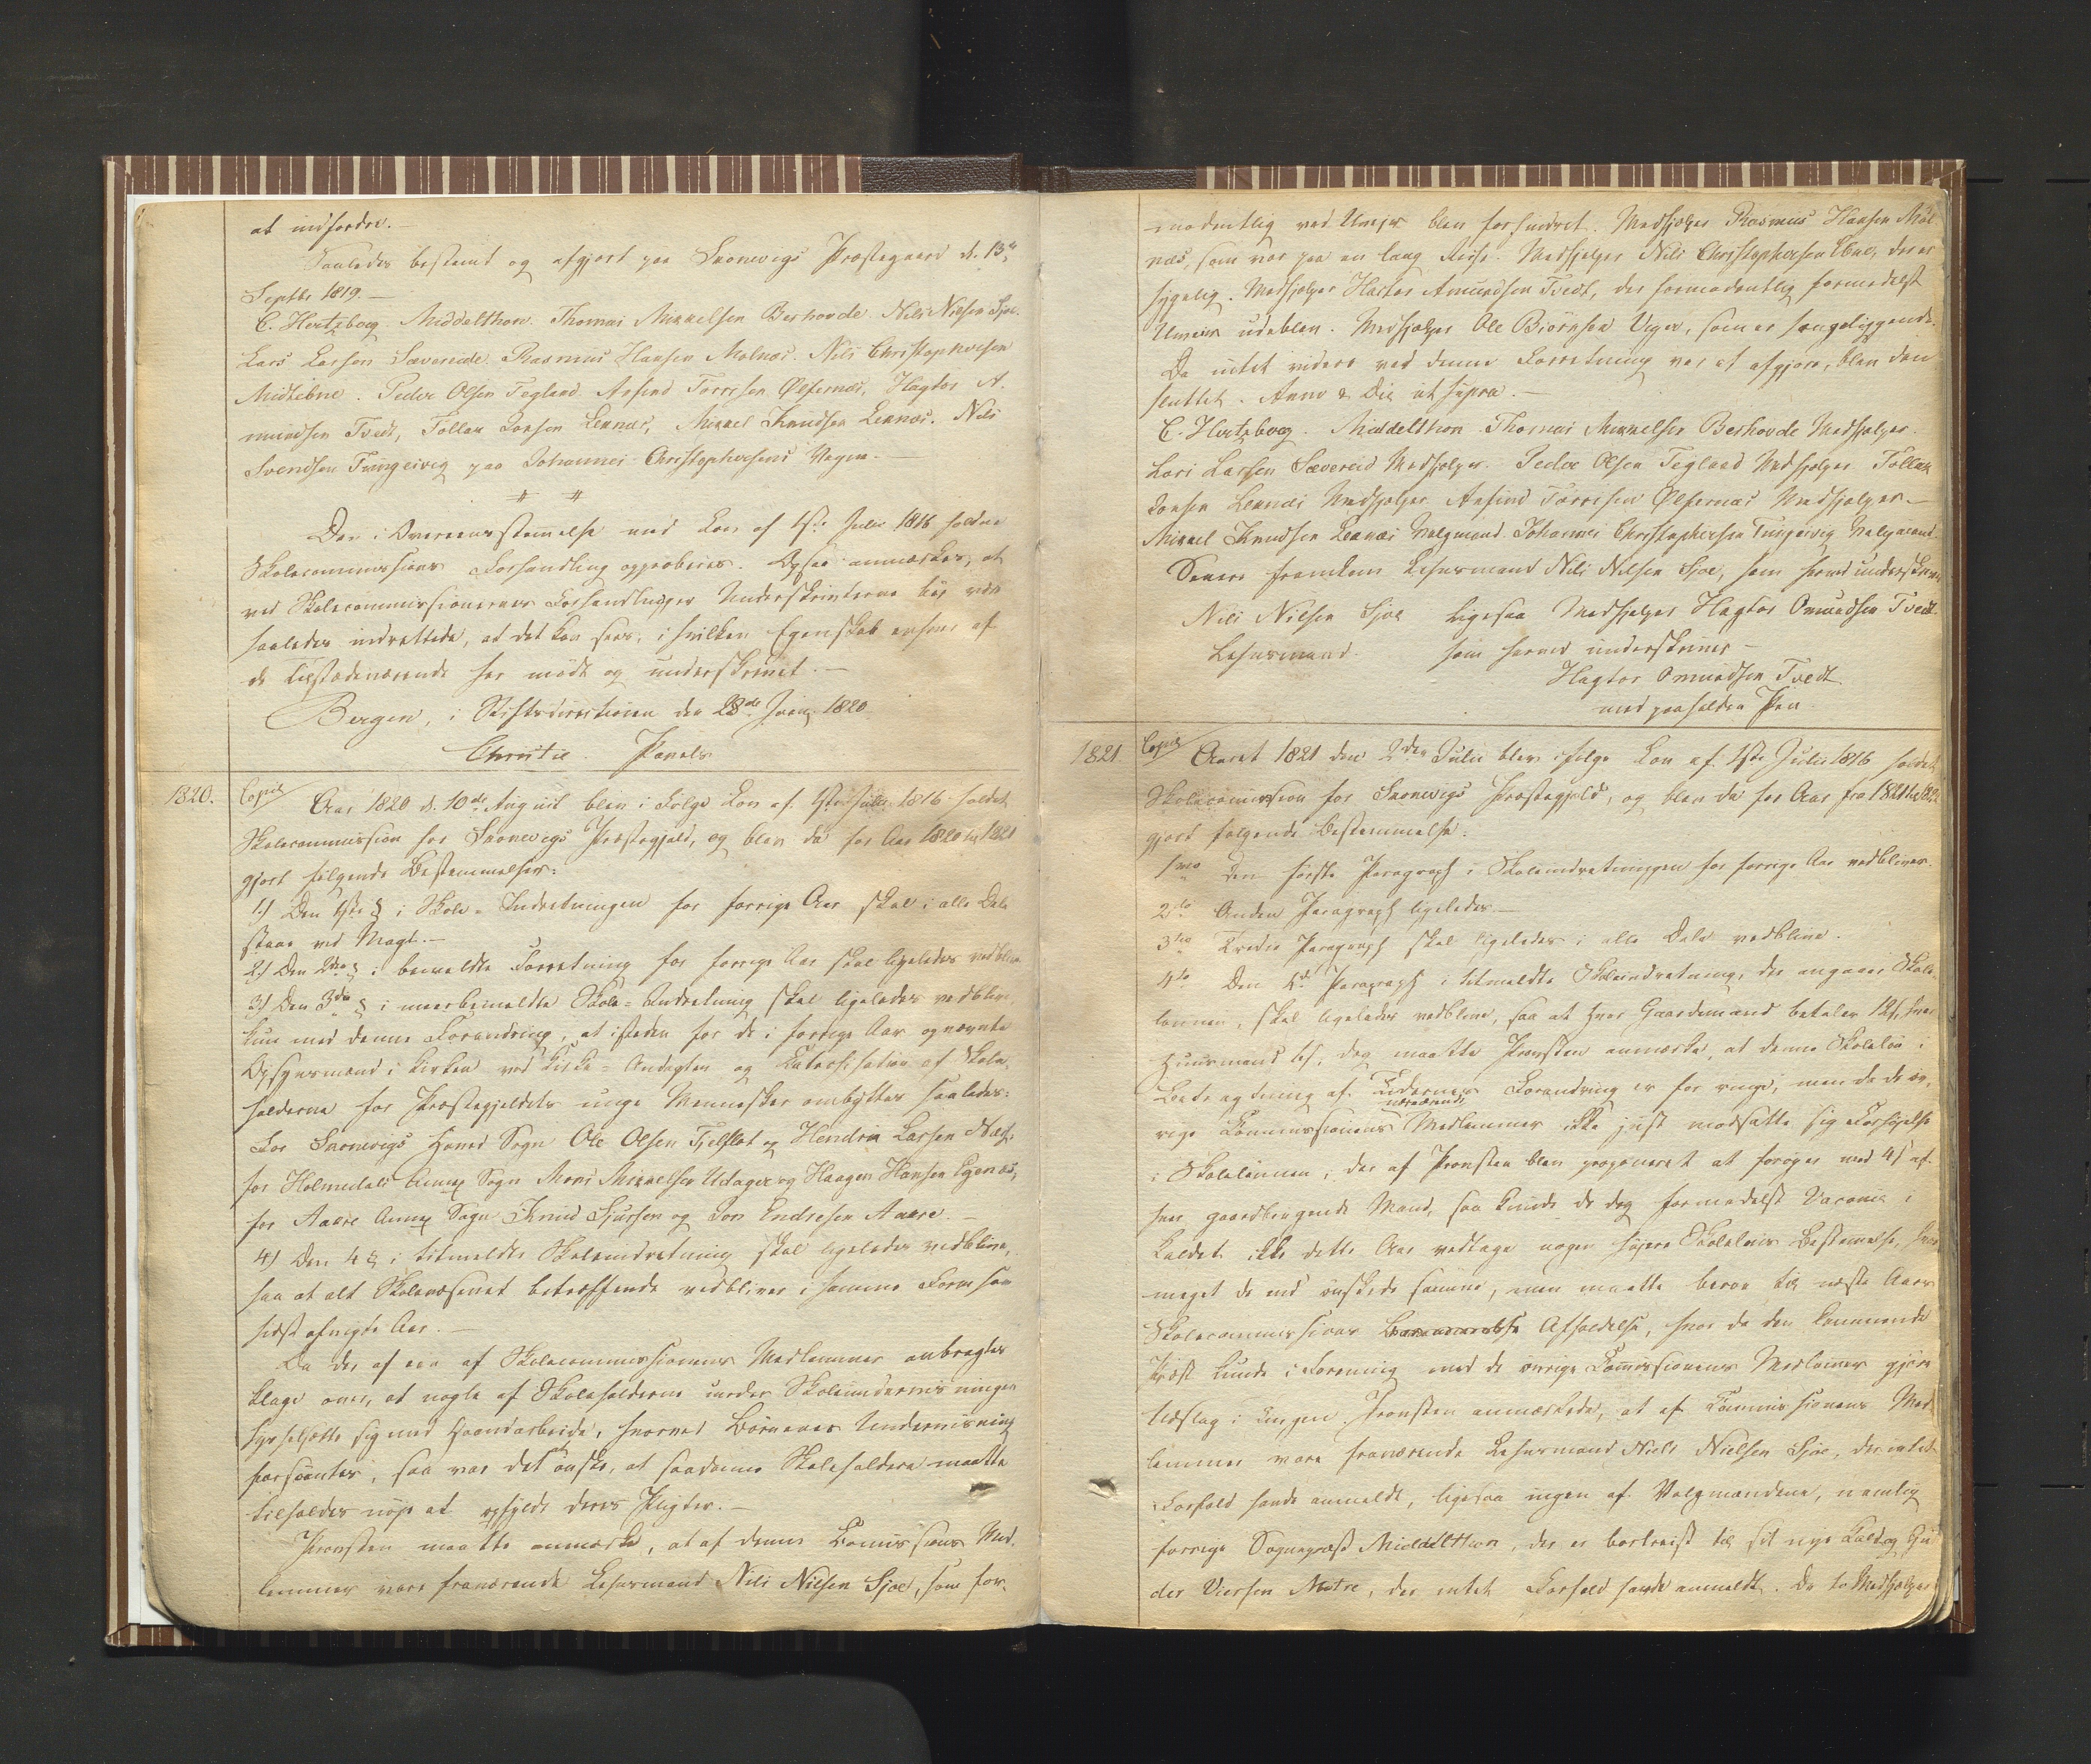 at indfordre. —
Saaledes bestemt og afgjort paa Skonevigs Præstegaard d. 13de
Septbr 1819. —
C. Hertzberg. Middelthon. Thomas Mikkelsen Berhovde. Nils Nilsen Sjoe.
Lars Larsen Sævereide. Rasmus Hansen Molnæs. Nils Christophersen
Midtebne. Peder Olsen Tegland. Anfind Torresen Ølfernæs, Hagtor A.
mundsen Tvedt, Tollak Larsen Leknæs, Mikkel Knudsen Leknæs. Nils
Svendsen Tungesvig paa Johannes Christophersens Vegne. —
# #
Den i Overeensstemmelse med Lov af 1ste Julii 1816 holdne
Skolecommissions Forhandling approberes. Dysse anmærkes, at
ved Skolecommissionernes Forhandlinger Underskrifterne bør være
saaledes indrettede, at det kan sees, i hvilken Egenskab enhver af
de tilstædeværende har mødt og underskrevet. —
Bergen, i Stiftsdirectionen den 28de Jun. 1820.
Christie. Pavels
1820. Copie Aar 1820 d. 10de August blev i Følge Lov af 1ste Julii 1816 holdet
Skolecommission for Skonevigs Præstegjeld, og blev da for Aar 1820 til 1821
gjort følgende Bestemmelser:
1) Den 1ste § i Skole-Indretningen for forrige Aar skal i alle Dele
staae ved Magt. —
2) Den 2den § i bemeldte Forretning for forrige Aar skal ligeledes vedblive
3) Den 3die § i meerbemeldte Skole-Indretning skal ligeledes vedblive,
kun med denne Forandring, at isteden for de i forrige Aar opnævnte
Opsynsmænd i Kirken ved Kirke-Andagten og Catechisation af Skole-
holderne for Præstegjeldets unge Mennesker ombyttes saaledes:
For Skonevigs Hoved Sogn Ole Olsen Fjelstøt og Hendrik Larsen Næs,
for Holmedals Annex Sogn Mons Mikkelsen Udager og Haagen Hansen Egenæs,
for Aakre Annex Sogn Knud Sjursen og Jon Endresen Aakre. —
4) Den 4 § i titmeldte Skoleindretning skal ligeledes vedblive,
saa at alt Skolevæsenet betræffende vedbliver i samme Form som
sidst afvigte Aar. —
Da der af een af Skolecommissionens Medlemmer anbragtes
Klage over, at nogle af Skoleholderne under Skoleundervisningen
sysselsætte sig med Haandarbeide, hvorved Børnenes Underviisning
forsømtes, saa var det Ønske, at saadanne Skoleholdere maatte
tilholdes nøie at opfylde deres Pligter. —
Provsten maatte anmærke, at af denne Commissions Med-
lemmer vare fraværende Lehnsmand Nils Nilsen Sjoe, som for-
modentlig ved Uveir blev forhindret. Medhjelper Rasmus Hansen Mol-
næs, som var paa en lang Reise. Medhjelper Nils Christophersen Ebne, der er
sygelig. Medhjelper Hactor Amundsen Tvedt, der formodentlig formedelst
Uveir udeblev. Medhjelper Ole Biørnsen Veger, som er sengeliggende.
Da intet videre ved denne Forretning var at afgjøre, blev den
sluttet. Anno & Die ut supra. —
C. Hertzberg. Middelthon. Thomas Mikkelsen Berhovde Medhjelper.
Lars Larsen Sævereid Medhjelper. Peder Olsen Tegland Medhjelper Tollak
Larsen Leknæs Medhjelper Anfind Torrisen Ølfernæs Medhjelper. —
Mikkel Knudsen Leknæs Valgmand. Johannes Christophersen Tungesvig Valgmand.
Senere fremkom Lehnsmand Nils Nilsen Sjoe, som herved underskriver
Nils Nilsen Sjoe Ligesaa Medhjelper Hagtor Omundsen Tvedt
Lehnsmand. som herved underskriver —
Hagtor Omundsen Tvedt
med paaholden Pen
1821. Copie Aaret 1821 den 2den Julii blev ifølge Lov af 1ste Julii 1816 holdet
Skolecommission for Skonevigs Præstegjeld, og blev da for Aar fra 1821 til 822
gjort følgende Bestemmelse.
1mo Den første Paragraph i Skoleindretningen for forrige Aar vedbliver.
2do Anden Paragraph ligeledes. —
3tio Tredie Paragraph skal ligeledes i alle Dele vedblive.
4to Den 4de Paragraph i titmeldte Skoleindretning, der angaaer Skole-
lønnen, skal ligeledes vedblive, saa at hver Gaardmand betaler 12s, hver
Huusmand 6s, dog maatte Provsten anmærke, at denne Skoleløn i
Betragtning af Tidernes Forandring er for ringe, men da de øv-
rige Commissionens nærværende Medlemmer ikke just modsatte sig Forhøielse
i Skolelønnen, der af Provsten blev proponeret at forøges med 4s af
hver gaardbrugende Mand, saa kunde de dog formedelst Vacance i
Kaldet ikke dette Aar vedtage nogen høiere Skoleløns Bestemmelse, hvor
meget de end ønskede samme, men maatte beroe til næste Aars
Skolecommissions Afholdelse, hvor da den kommende
Præst kunde i Forening med de øvrige Commissionens Medlemmer gjøre
Udslag i Tingen. Provsten anmærkede, at af Commissionens Med-
lemmer vare fraværende Lehnsmand Niels Nielsen Sjoe, der intet
Forfald havde anmeldt, ligesaa ingen af Valgmændene, nemlig
forrige Sognepræst Middelthon, der er bortreist til sit nye Kald og
der Viersen Matre, der intet Forfald havde anmeldt. De to Medhjelpere